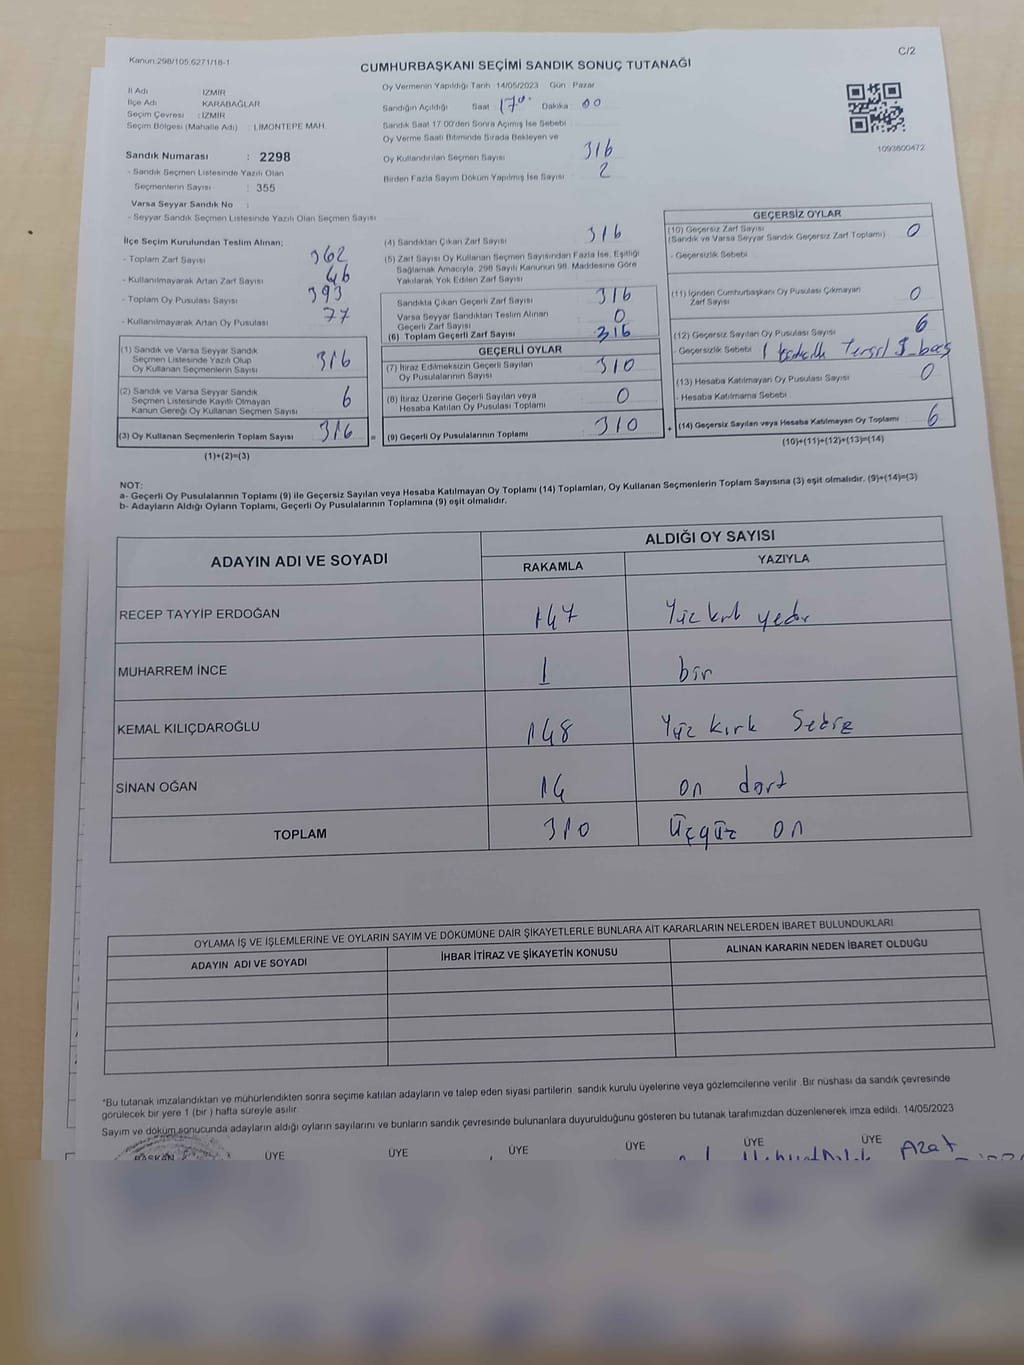 Kanun:298/105,6271/18-1
C/2
CUMHURBAŞKANI SEÇİMİ SANDIK SONUÇ TUTANAĞI
İl Adı İZMİR
İlçe Adı KARABAĞLAR
Seçim Çevresi : İZMİR
Seçim Bölgesi (Mahalle Adı) : LİMONTEPE MAH.
Oy Vermenin Yapıldığı Tarih 14/05/2023 Gün : Pazar
Sandığın Açıldığı Saat 17 00 Dakika : 00
Sandık Saat 17:00'den Sonra Açımış İse Sebebi
Oy Verme Saati Bitiminde Sırada Bekleyen ve
Oy Kullandırılan Seçmen Sayısı 316
Birden Fazla Sayım Döküm Yapılmış İse Sayısı : 2
1093600472
Sandık Numarası : 2298
- Sandık Seçmen Listesinde Yazılı Olan
Seçmenlerin Sayısı : 355
Varsa Seyyar Sandık No :
- Seyyar Sandık Seçmen Listesinde Yazılı Olan Seçmen Sayısı
İlçe Seçim Kurulundan Teslim Alınan;
- Toplam Zarf Sayısı 362
- Kullanılmayarak Artan Zarf Sayısı 46
- Toplam Oy Pusulası Sayısı 393
- Kullanılmayarak Artan Oy Pusulası 77
(1) Sandık ve Varsa Seyyar Sandık
Seçmen Listesinde Yazılı Olup
Oy Kullanan Seçmenlerin Sayısı 316
(2) Sandık ve Varsa Seyyar Sandık
Seçmen Listesinde Kayıtlı Olmayan
Kanun Gereği Oy Kullanan Seçmen Sayısı 6
(3) Oy Kullanan Seçmenlerin Toplam Sayısı 316 =
(1)+(2)=(3)
(4) Sandıktan Çıkan Zarf Sayısı 316
(5) Zarf Sayısı Oy Kullanan Seçmen Sayısından Fazla İse, Eşitliği
Sağlamak Amacıyla, 298 Sayılı Kanunun 98. Maddesine Göre
Yakılarak Yok Edilen Zarf Sayısı
Sandıkta Çıkan Geçerli Zarf Sayısı 316
Varsa Seyyar Sandıktan Teslim Alınan
Geçerli Zarf Sayısı 0
(6) Toplam Geçerli Zarf Sayısı 316
GEÇERLİ OYLAR
(7) İtiraz Edilmeksizin Geçerli Sayılan
Oy Pusulalarının Sayısı 310
(8) İtiraz Üzerine Geçerli Sayılan veya
Hesaba Katılan Oy Pusulası Toplamı 0
(9) Geçerli Oy Pusulalarının Toplamı 310 +
GEÇERSİZ OYLAR
(10) Geçersiz Zarf Sayısı
(Sandık ve Varsa Seyyar Sandık Geçersiz Zarf Toplamı) 0
- Geçersizlik Sebebi
(11) İçinden Cumhurbaşkanı Oy Pusulası Çıkmayan
Zarf Sayısı 0
(12) Geçersiz Sayılan Oy Pusulası Sayısı 6
- Geçersizlik Sebebi 1
(13) Hesaba Katılmayan Oy Pusulası Sayısı 0
- Hesaba Katılmama Sebebi
(14) Geçersiz Sayılan veya Hesaba Katılmayan Oy Toplamı 6
(10)+(11)+(12)+(13)=(14)
NOT:
a- Geçerli Oy Pusulalarının Toplamı (9) ile Geçersiz Sayılan veya Hesaba Katılmayan Oy Toplamı (14) Toplamları, Oy Kullanan Seçmenlerin Toplam Sayısına (3) eşit olmalıdır. (9)+(14)=(3)
b- Adayların Aldığı Oyların Toplamı, Geçerli Oy Pusulalarının Toplamına (9) eşit olmalıdır.
ADAYIN ADI VE SOYADI ALDIĞI OY SAYISI
RAKAMLA YAZIYLA
RECEP TAYYİP ERDOĞAN 147 Yüz kırk yedi
MUHARREM İNCE 1 bir
KEMAL KILIÇDAROĞLU 148 Yüz kırk Sekiz
SİNAN OĞAN 14 on dört
TOPLAM 310 Üçyüz on
OYLAMA İŞ VE İŞLEMLERİNE VE OYLARIN SAYIM VE DÖKÜMÜNE DAİR ŞİKAYETLERLE BUNLARA AİT KARARLARIN NELERDEN İBARET BULUNDUKLARI
ADAYIN ADI VE SOYADI İHBAR İTİRAZ VE ŞİKAYETİN KONUSU ALINAN KARARIN NEDEN İBARET OLDUĞU
*Bu tutanak imzalandıktan ve mühürlendikten sonra seçime katılan adayların ve talep eden siyasi partilerin sandık kurulu üyelerine veya gözlemcilerine verilir .Bir nüshası da sandık çevresinde
görülecek bir yere 1 (bir ) hafta süreyle asılır.
Sayım ve döküm sonucunda adayların aldığı oyların sayılarını ve bunların sandık çevresinde bulunanlara duyurulduğunu gösteren bu tutanak tarafımızdan düzenlenerek imza edildi. 14/05/2023
BAŞKAN ÜYE ÜYE ÜYE ÜYE ÜYE ÜYE
Azat